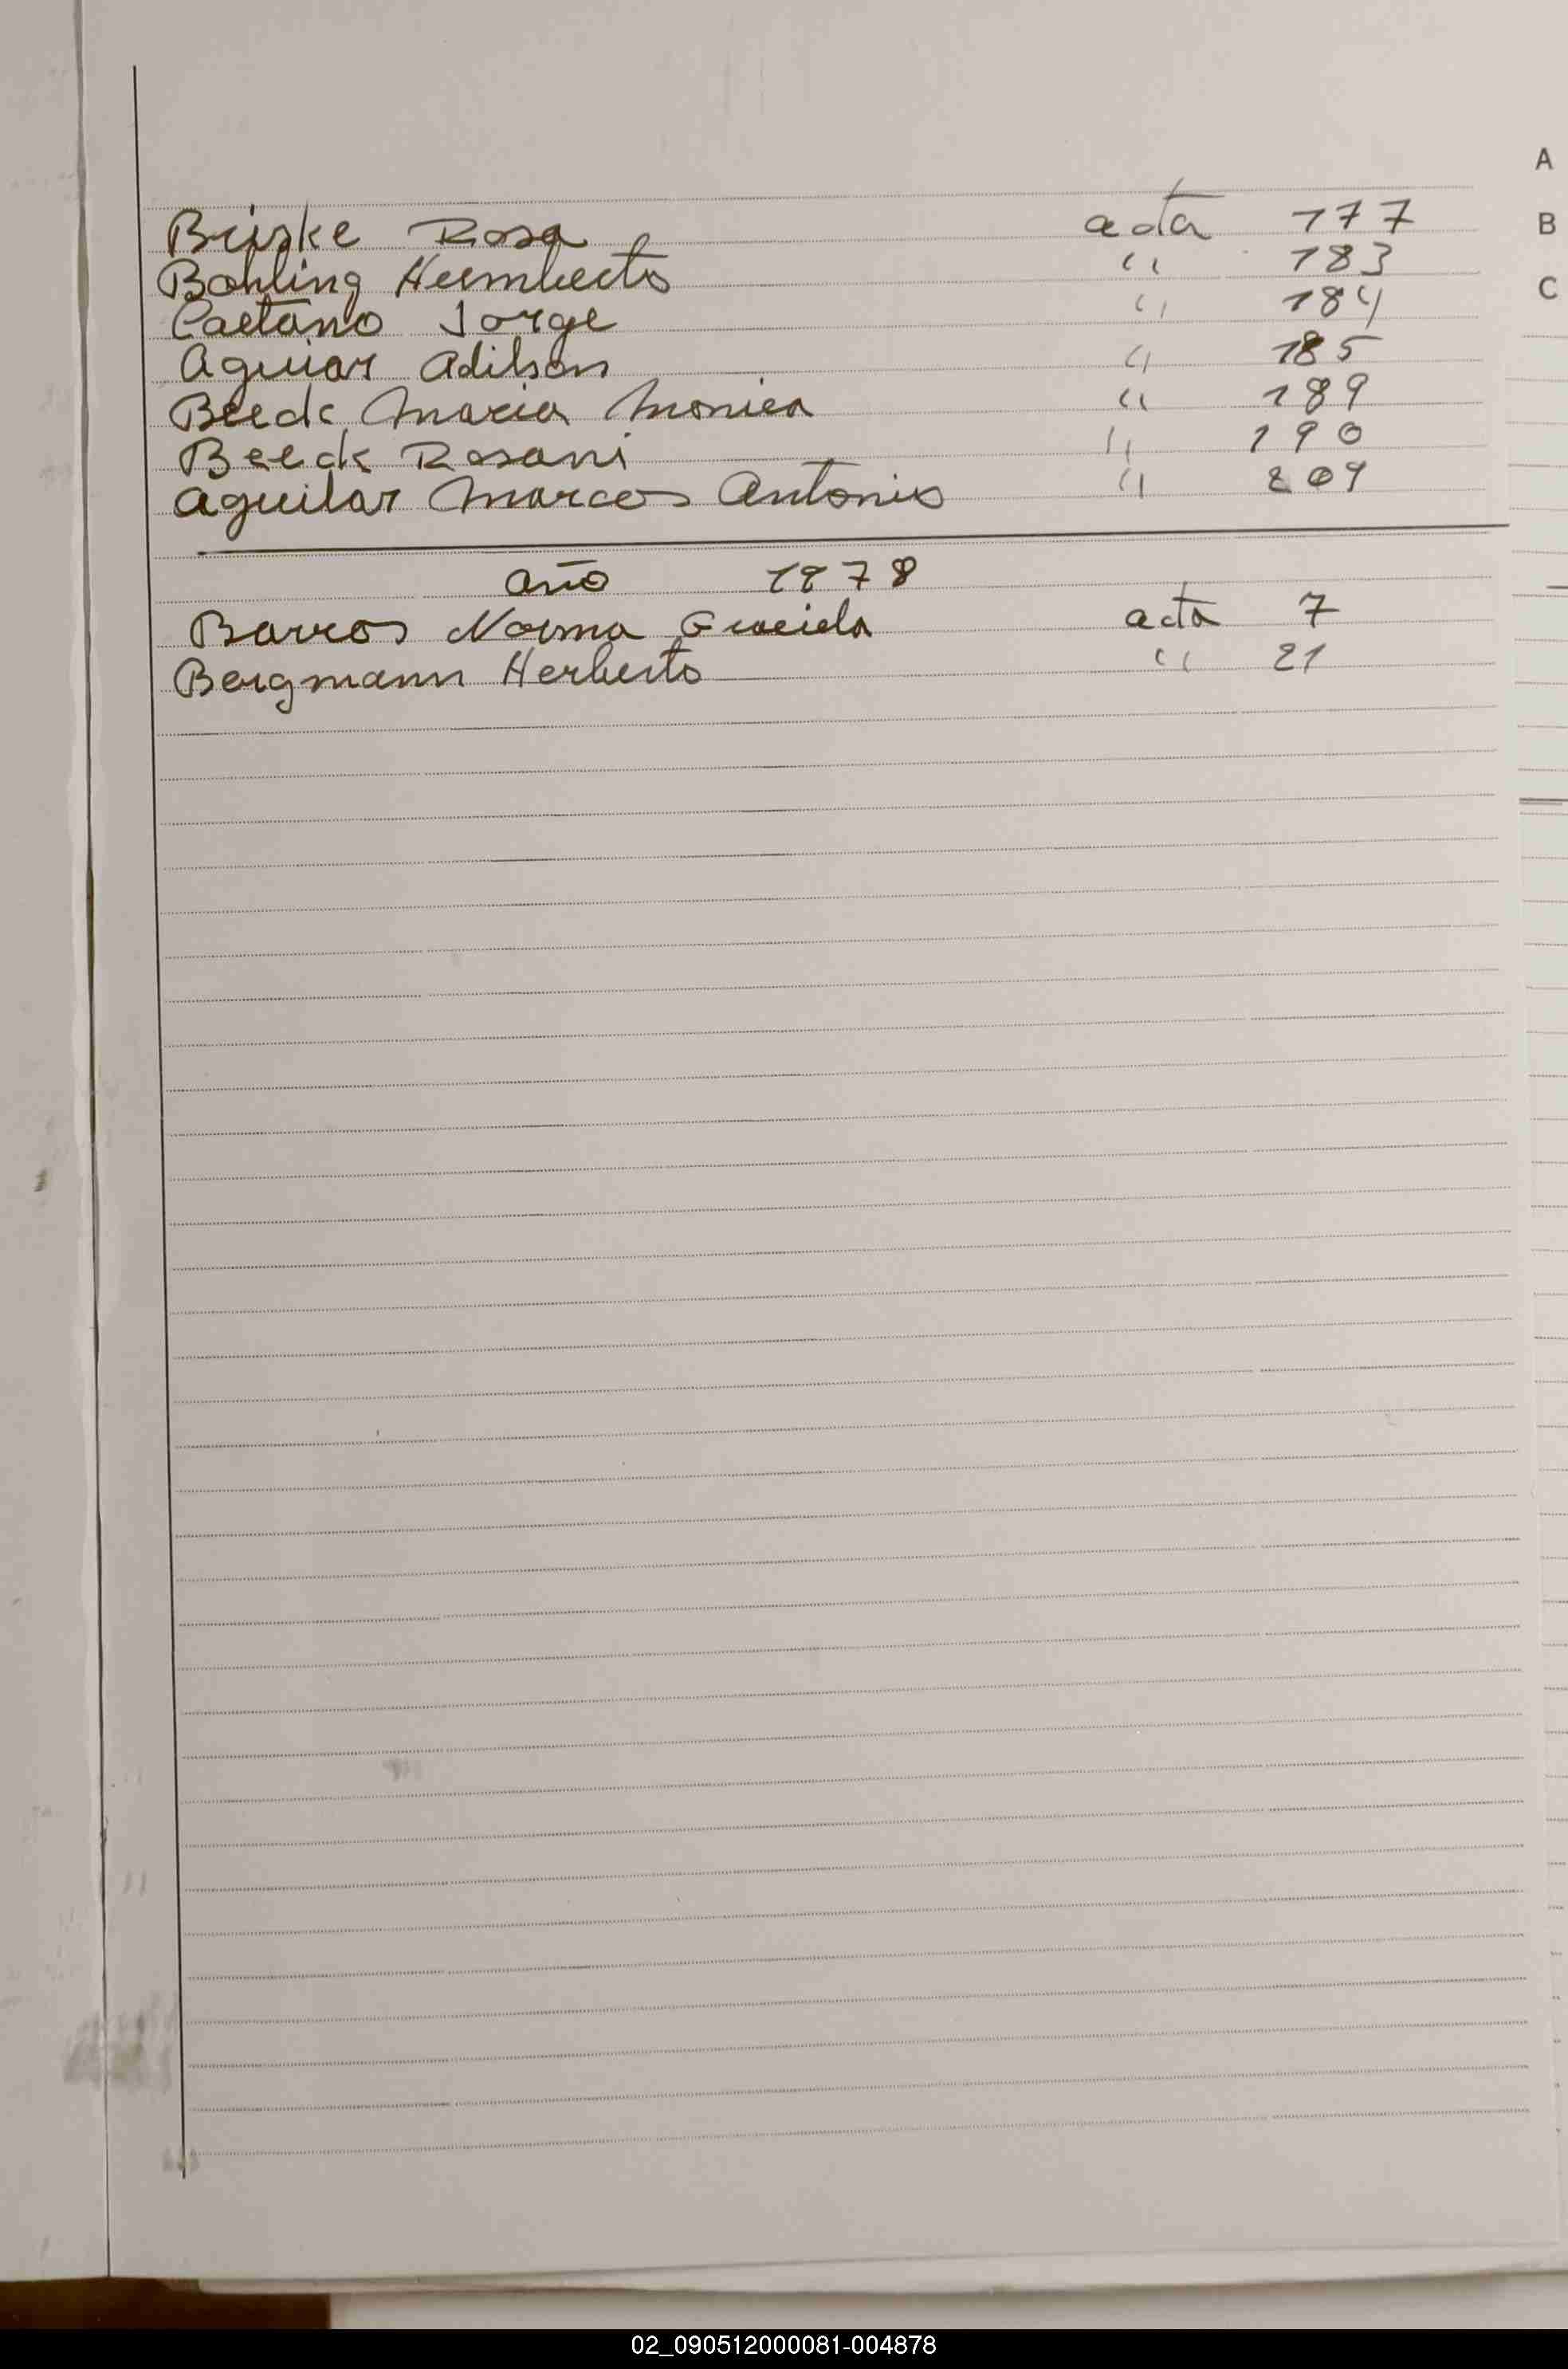 A
B
C
Briske Rosa acta 177
Bohling Humberto " 183
Caetano Jorge " 184
Aguiar Adilson " 185
Beeck Maria Monica " 189
Beeck Rosani " 190
Aguilar Marcos Antonio " 209
año 1978
Barros Norma Graciela acta 7
Bergmann Herberto " 21
02_090512000081-004878